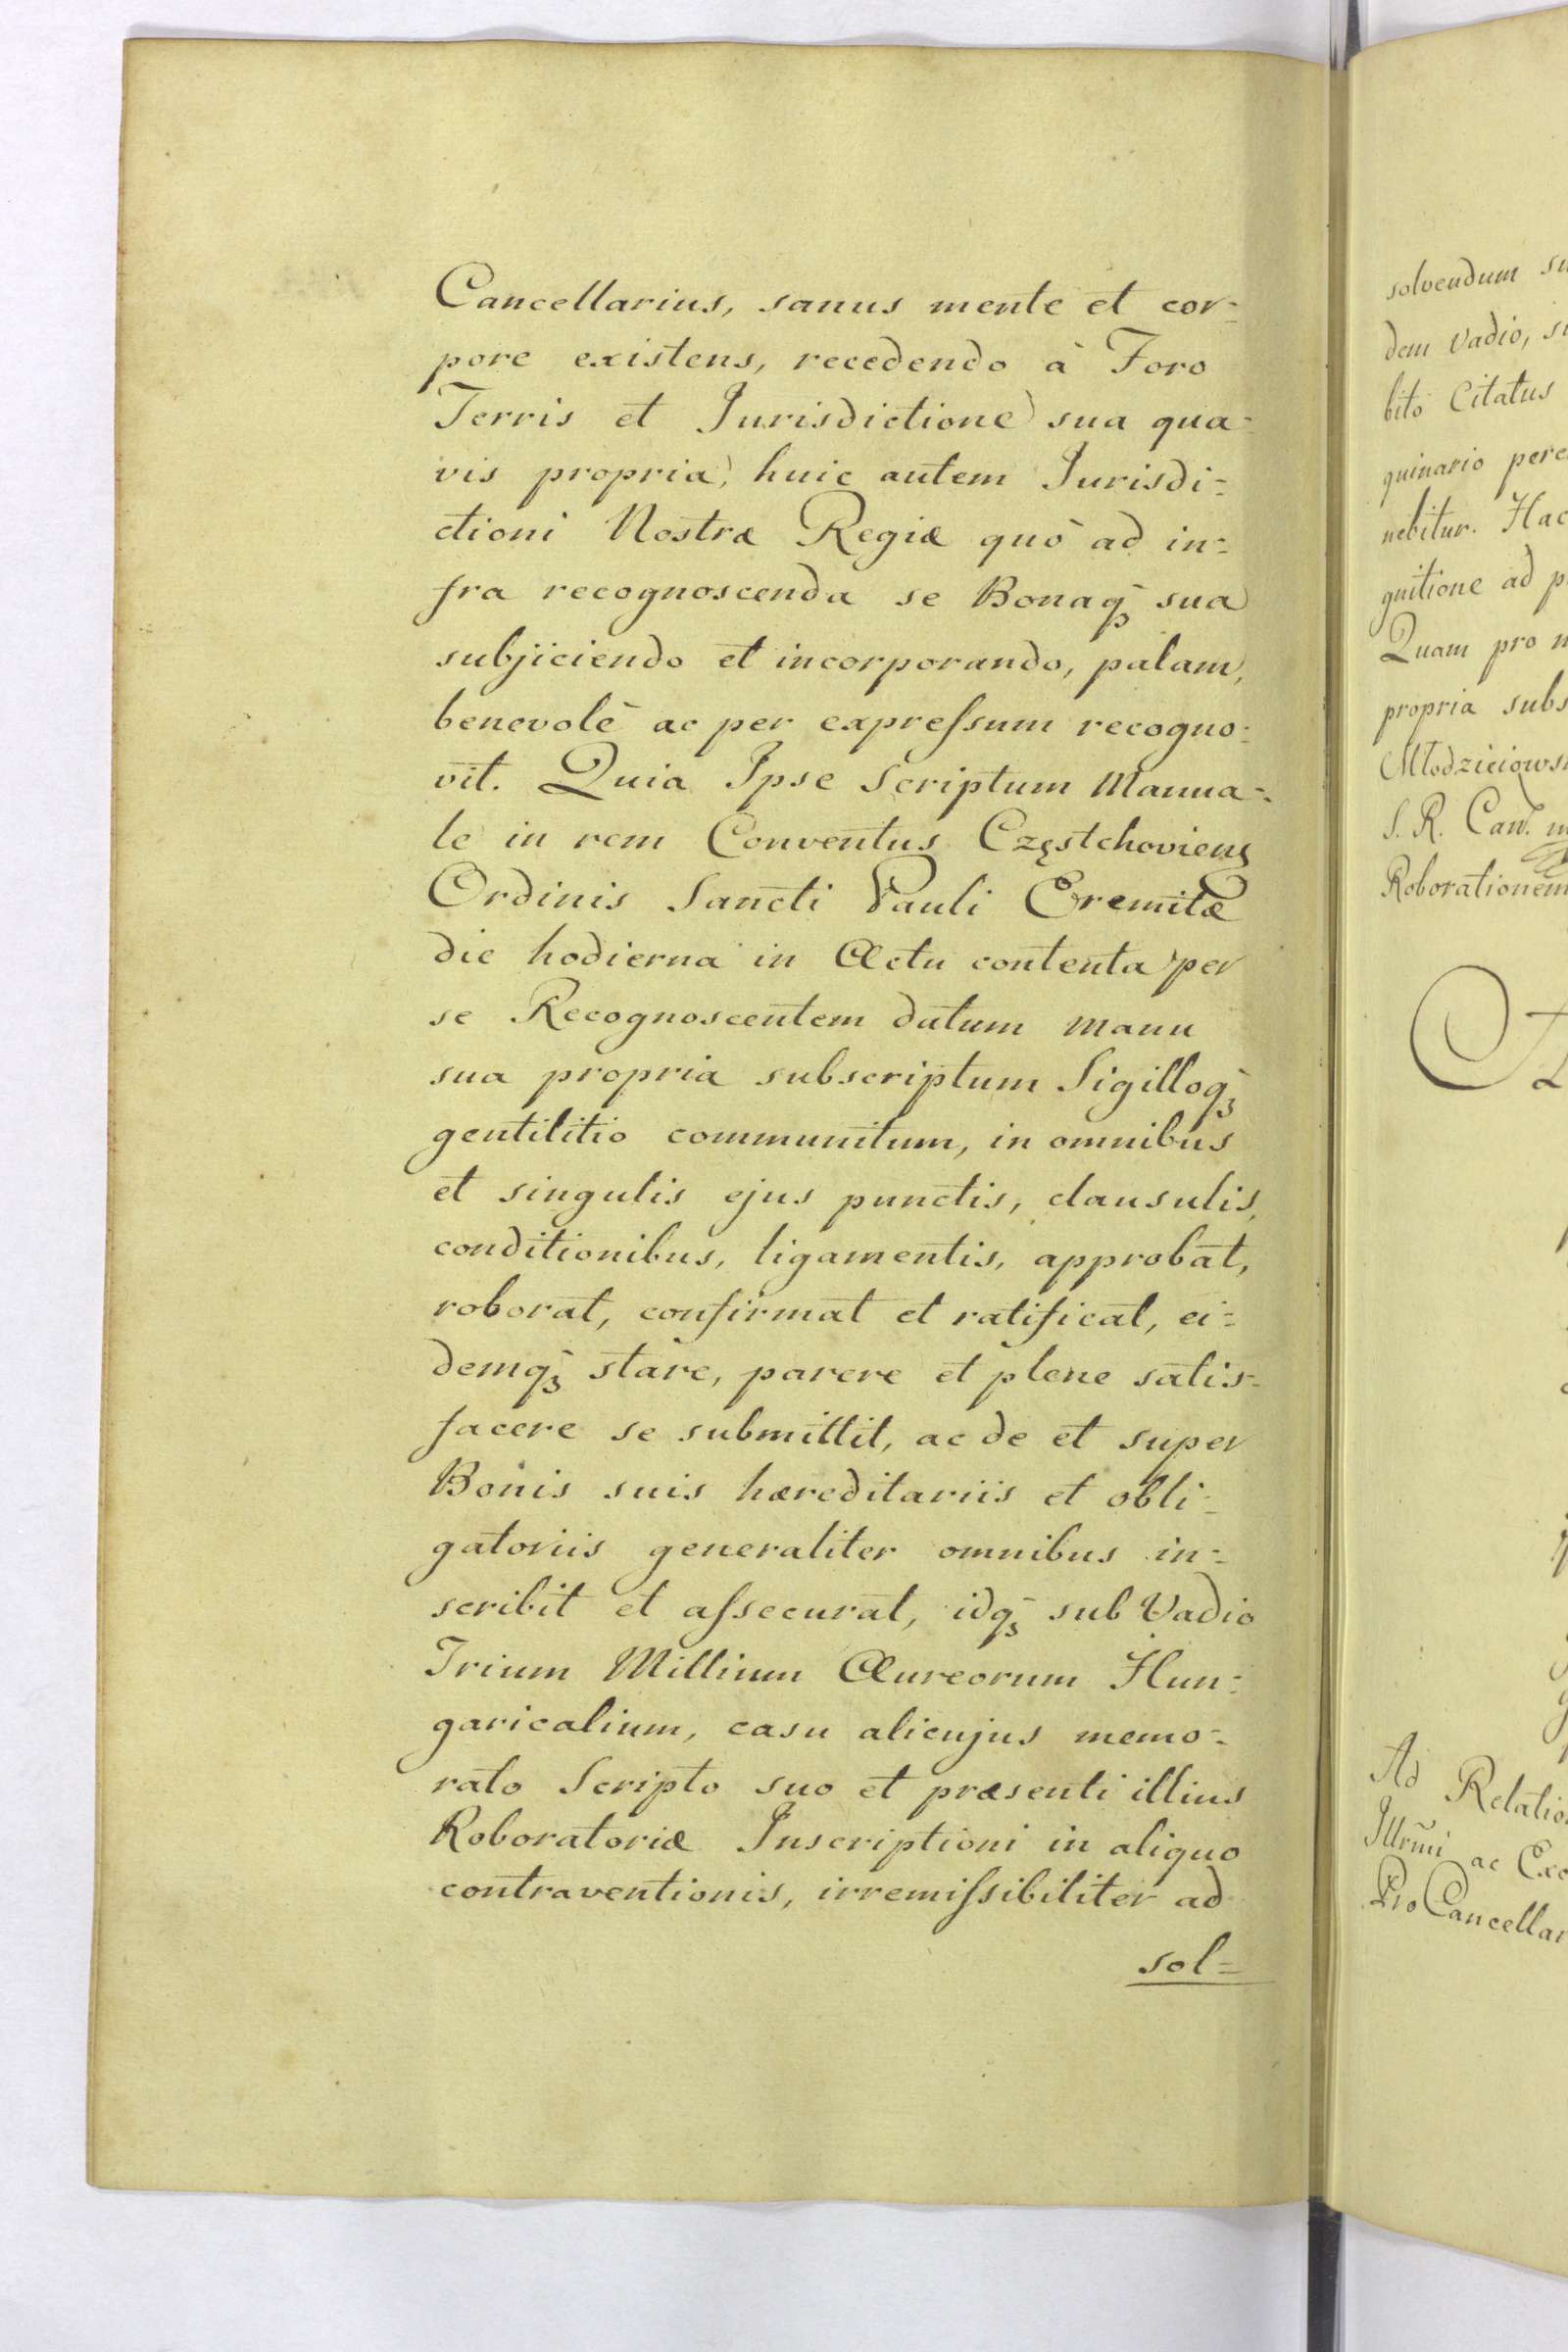 Cancellarius, sanus mente et cor=
pore existens, recedendo à Foro
Terris et Jurisdictione sua qua=
vis propria, huic autem Jurisdi=
ctioni Nostræ Regiæ quò ad in=
fra recognoscenda se Bonaq̃ꝫ sua
subjiciendo et incorporando, palam,
benevolè ac per expreſsum recogno=
vit. Quia Ipse Scriptum Manua=
le in rem Conventus Częstchoviens
Ordinis Sancti Pauli Eremitæ
die hodierna in Actu contenta per
se Recognoscentem datum manu
sua propria subscriptum Sigilloq̃ꝫ
gentilitio communitum, in omnibus
et singulis ejus punctis, clausulis,
conditionibus, ligamentis, approbat,
roborat, confirmat et ratificat, ei=
demq̃ꝫ stare, parere et plene satis=
facere se submittit, ac de et super
Bonis suis hæreditariis et obli=
gatoriis generaliter omnibus in=
scribit et aſsecurat, idq̃ꝫ sub Vadio
Trium Millium Aureorum Hun=
garicalium, casu alicujus memo=
rato Scripto suo et præsenti illius
Roboratoriæ Inscriptioni in aliquo
contraventionis, irremiſsibiliter ad
sol=
solvendum
dem vadio,
bito Citatus
quinario
nebitur.
guitione ad
Quam pro
propria
S. R.
Roborationem
Ad
Illrm̃i ac
Pro